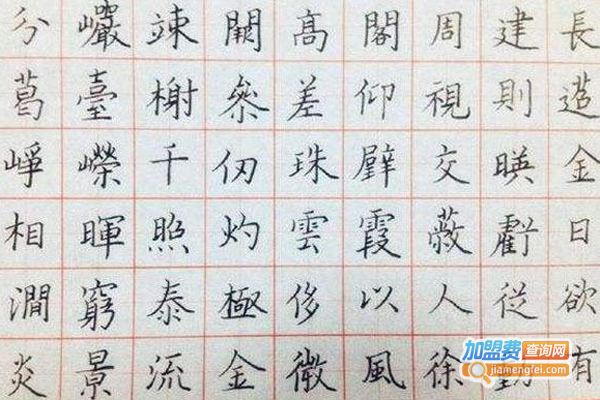 分巖竦闕髙閣周建長
葛臺榭叅差仰視則迢
崢嶸千仞珠壁交暎金
相暉照灼雲霞蔽虧日
澗窮泰極侈以人從欲
炎景流金微風徐動有
加盟费查询网
jiamengfei.com